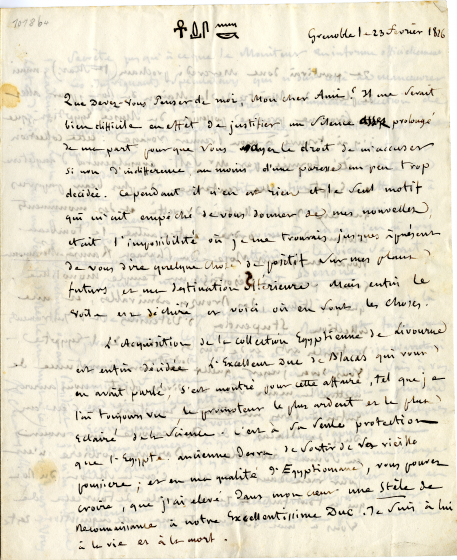 101864
𓋹𓍑𓋴 𓏠
Grenoble le 23 février 1826
Que devez-vous penser de moi, Mon cher Ami? Il me serait
bien difficile en effet de justifier un silence prolongé
de ma part pour que vous le droit de m'accuser
si non d'indifférence au moins d'une paresse un peu trop
décidée. Cependant il n'en est rien et le seul motif
qui m'ait empêché de vous donner de mes nouvelles,
était l'impossibilité où je me trouvais jusques àprésent
de vous dire quelque chose de positif sur mes plans
futurs et ma destination ultérieure. Mais enfin le
voile est déchiré et voici où en sont les choses.
L'Acquisition de la collection Égyptienne de Livourne
est enfin décidée. L'Excellent Duc de Blacas qui vous
en avait parlé, s'est montré pour cette affaire, tel que je
l'ai toujours vu le promoteur le plus ardent et le plus
Éclairé de la Science. c'est à sa seule protection
que l'Egypte ancienne Devra de Sortir de Ses vieille
poussière; et en ma qualité d'Egyptiomane, vous pouvez
croire, que j'ai elevé, dans mon cœur une Stèle de
Reconnaissance à notre Excellentissime Duc. Je suis à lui
à la vie et à la mort.